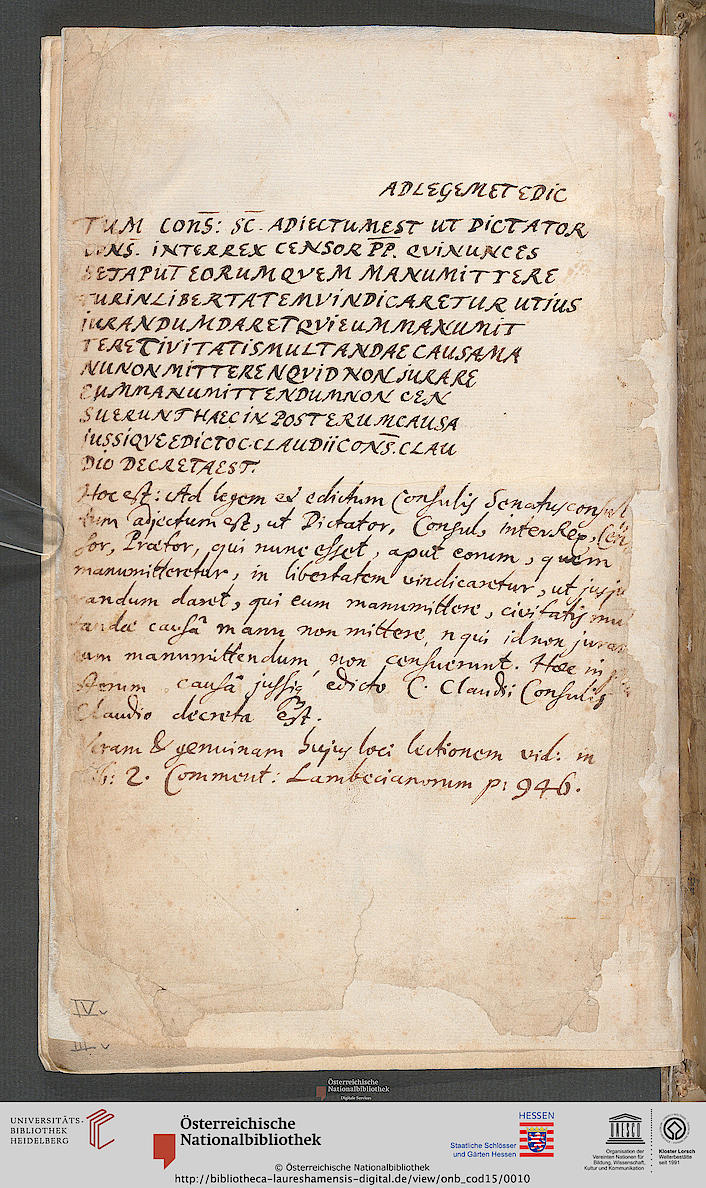 ADLEGEMETEDIC
TUM CONS: SC. ADIECTUMEST UT DICTATOR
CONS. INTERREX CENSOR PP. QVINUNCES
SETAPUT EORUMQVEM MANUMITTERE
TURINLIBERTATEMVINDICARETUR UTIUS
IURANDUMDARETQVIEUMMANUMIT
TERETCIVITATISMULTANDAECAUSAMA
NUNONMITTERENQVIDNONJURARE
EUMMANUMITTENDUMNON CEN
SUERUNTHAECIN POSTERUMCAUSA
IUSSIQVEEDICTOC.CLAUDIICONS.CLAU
DIO DECRETAEST.
Hoc est: Ad legem et edictum Consulis Senatusconsul
tum adjectum est, ut Dictator, Consul, interRex, Cen
sor, Praetor, qui nunc esset, aput eorum, quem
manumitteretur, in libertatem vindicaretur, ut jusju
randum daret, qui eum manumittere, civitatis mul
tandae causâ manu non mittere, n qui id non jurar
eum manumittendum non censuerunt. Hoc in
sterum causâ jussiq edicto C. Claudii Consulis
Claudio decreta est.
Veram & genuinam hujus loci lectionem vid: in
lib: 2. Comment: Lambecianorum p: 946.
IV v
III v
Österreichische
Nationalbibliothek
Digitale Services
UNIVERSITÄTS-
BIBLIOTHEK
HEIDELBERG
Österreichische
Nationalbibliothek
HESSEN
Staatliche Schlösser
und Gärten Hessen
UNESCO
Organisation der
Vereinten Nationen für
Bildung, Wissenschaft,
Kultur und Kommunikation
Kloster Lorsch
Welterbestätte
seit 1991
© Österreichische Nationalbibliothek
http://bibliotheca-laureshamensis-digital.de/view/onb_cod15/0010